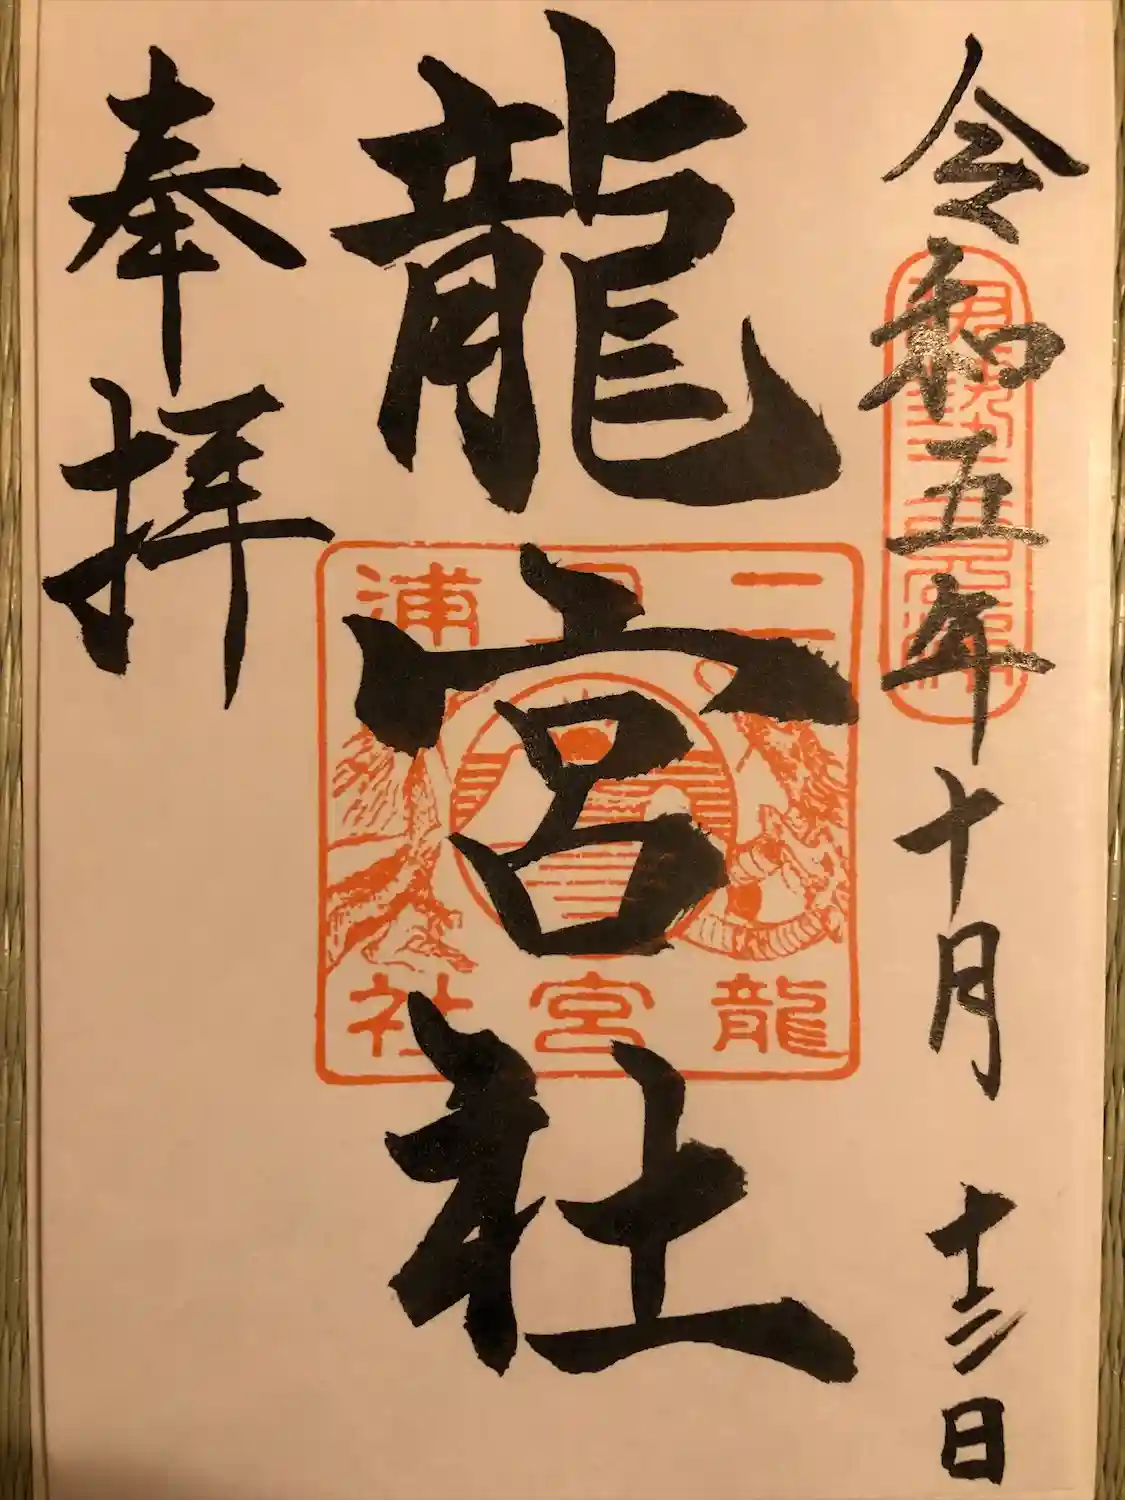 令和五年十月十三日
伊勢二見浦
龍宮社
二見浦
龍宮社
奉拝